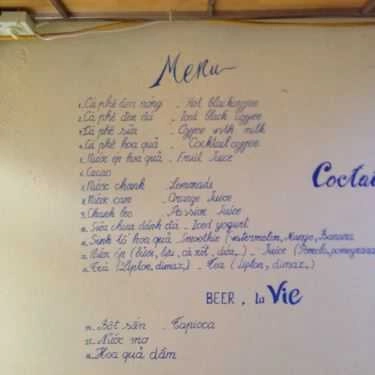 Menu
1. Cà phê đen nóng - Hot black coffee
2. Cà phê đen đá - Iced black coffee
3. Cà phê sữa - Coffee with milk
4. Cà phê hoa quả - Cocktail coffee
5. Nước ép hoa quả - Fruit Juice
6. Cacao
7. Nước chanh - Lemonade
8. Nước cam - Orange Juice
9. Chanh leo - Passion Juice
10. Sữa chua đánh đá - Iced yogurt
11. Sinh tố hoa quả Smoothie (watermelon, Mango, Banana
12. Nước ép (bưởi, lựu, cà rốt, dứa,) - Juice (Pomelo, pomegrana
13. Trà (Lipton, dimaz) - Tea (Lipton, dimaz,)
Coctai
BEER, La Vie
Bột sắn - Tapioca
Nước mơ
Hoa quả dầm